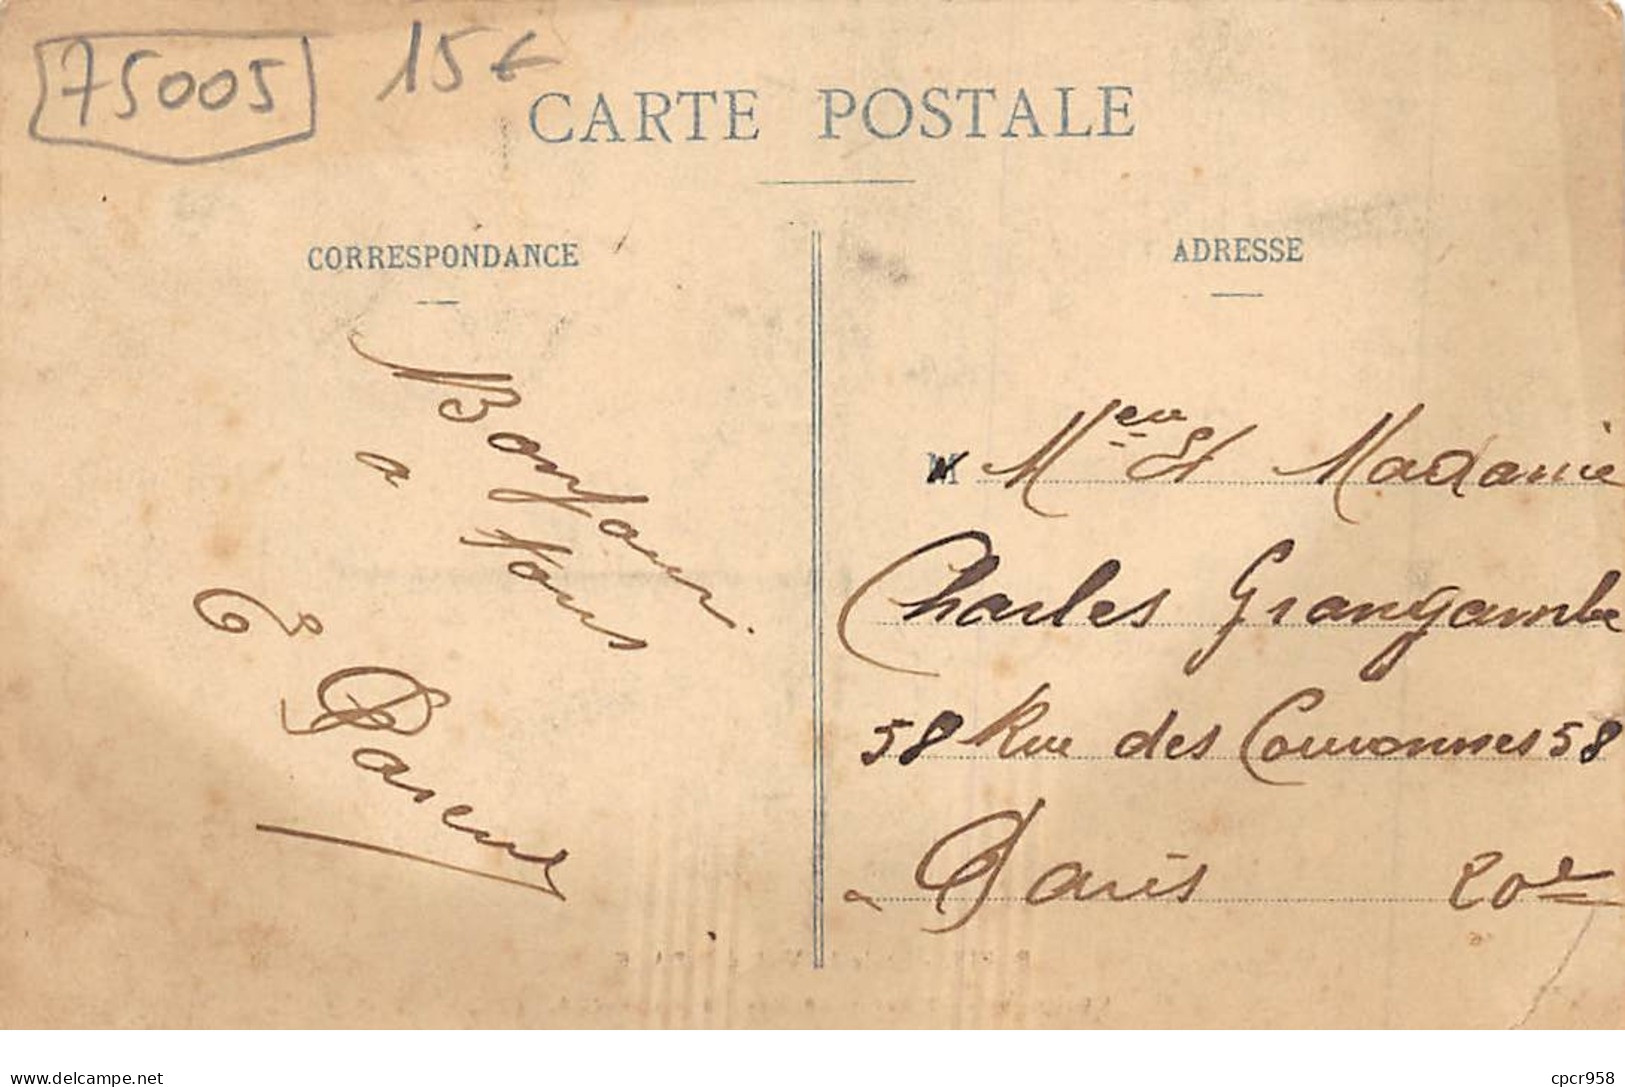 75005 15€
CARTE POSTALE
CORRESPONDANCE
ADRESSE
Bonjour
a
Vous
E Parent
M Mr et Madame
Charles Grangambe
58 Rue des Couronnes 58
a Paris 20e
delcampe.net
cpcr958